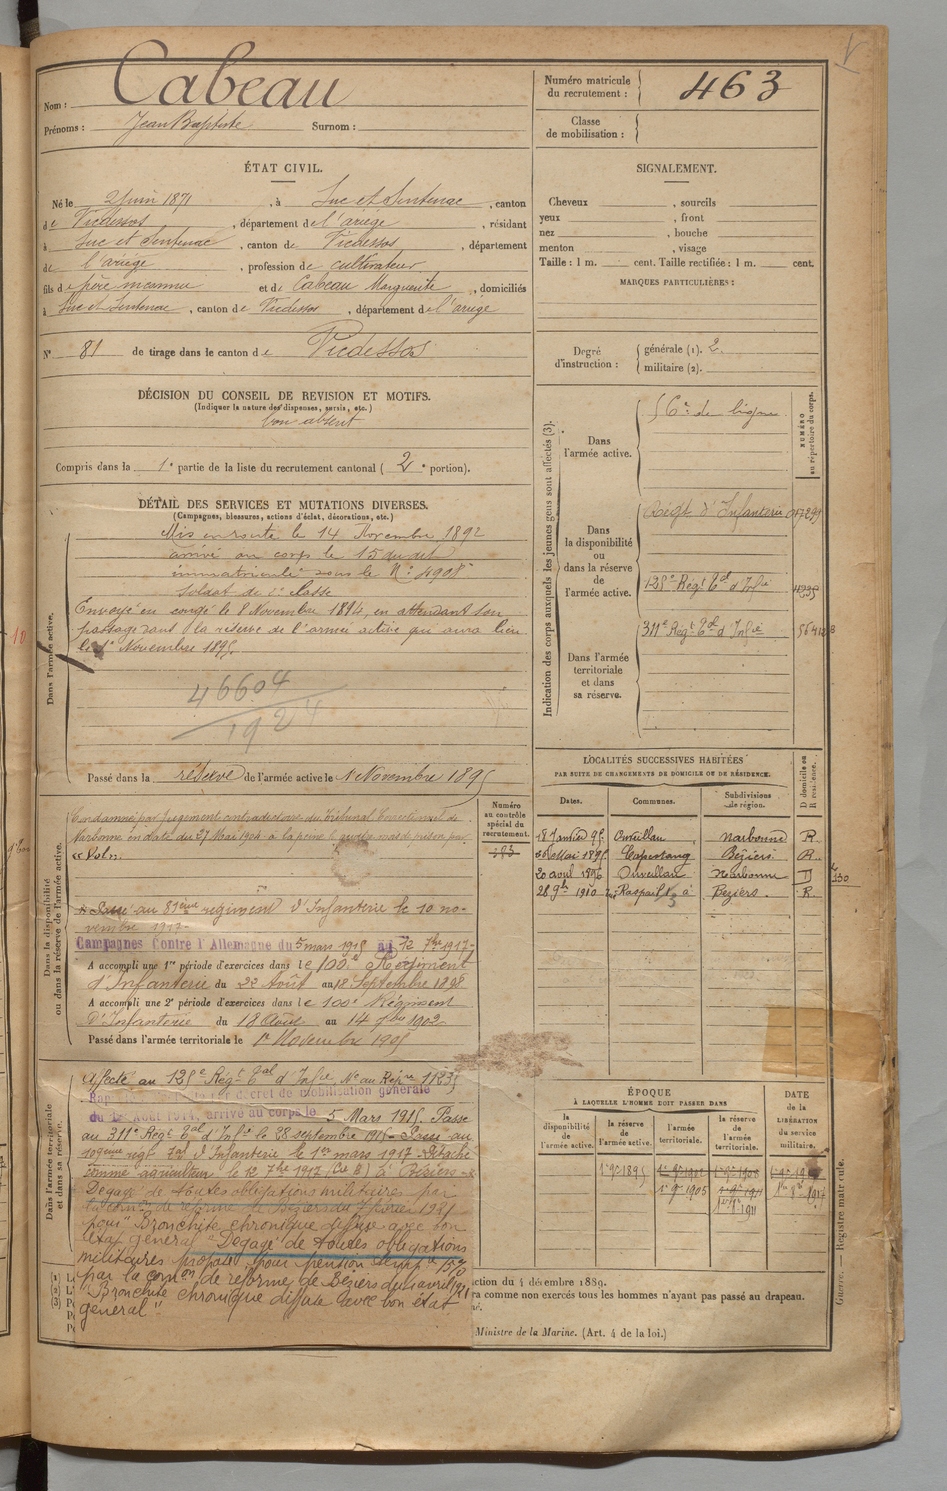 Nom : Cabeau
Prénoms : Jean Baptiste Surnom :
Numéro matricule du recrutement : 463
Classe de mobilisation :
ÉTAT CIVIL.
Né le 2 Juin 1871, à Suc et Sentenac, canton
de Vicdessos, département de l'ariège, résidant
à Suc et Sentenac, canton de Vicdessos, département
de l'ariège, profession de cultivateur
fils de père inconnu et de Cabeau Marguerite, domiciliés
à Suc et Sentenac, canton de Vicdessos, département de l'ariège
N° 81 de tirage dans le canton de Vicdessos
SIGNALEMENT.
Cheveux , sourcils
yeux , front
nez , bouche
menton , visage
Taille : 1 m. cent. Taille rectifiée : 1 m. cent.
MARQUES PARTICULIÈRES :
Degré d'instruction : générale (1). 2.
militaire (2).
DÉCISION DU CONSEIL DE REVISION ET MOTIFS.
(Indiquer la nature des dispenses, sursis, etc.)
bon absent
Compris dans la 1e partie de la liste du recrutement cantonal (2e portion).
DÉTAIL DES SERVICES ET MUTATIONS DIVERSES.
(Campagnes, blessures, actions d'éclat, décorations, etc.)
Dans l'armée active.
Mis en route le 14 Novembre 1892
arrivé au corps le 15 du dit
immatriculé sous le N° 4908
Soldat de 2e classe
Envoyé en congé le 8 Novembre 1894, en attendant son
passage dans la réserve de l'armée active qui aura lieu
le 1er Novembre 1895.
46604
1924
Passé dans la réserve de l'armée active le 1 Novembre 1895
Indication des corps auxquels les jeunes gens sont affectés (3).
NUMÉRO au répertoire du corps.
Dans l'armée active.
de ligne
Dans la disponibilité ou dans la réserve de l'armée active.
Régt d'Infanterie
125e Régt Tal d'Infie
311e Régt Tal d'Infie
Dans l'armée territoriale et dans sa réserve.
LOCALITÉS SUCCESSIVES HABITÉES
PAR SUITE DE CHANGEMENTS DE DOMICILE OU DE RÉSIDENCE.
Dates. Communes. Subdivisions de région. D domicile ou R résidence.
18 Janvier 95 Ouveillan Narbonne R.
Mai 1895 Capestang Béziers R.
20 aout 1896 Ouveillan Narbonne D
28 9bre 1910 Beziers. R.
Dans la disponibilité ou dans la réserve de l'armée active.
Numéro au contrôle spécial du recrutement.
Condamné par jugement contradictoire du Tribunal Correctionnel de
Narbonne en date du 27 Mai 1904 à la peine de
"Vol".
Passé au 81ème régiment d'Infanterie le 10 no-
vembre 1917-
Campagnes Contre l'Allemagne du 5 mars 1915 au 12 7bre 1917-
A accompli une 1re période d'exercices dans le 100e Régiment
d'Infanterie du 22 Août au 18 Septembre 1898
A accompli une 2e période d'exercices dans le 100e Régiment
d'Infanterie du 18 Août au 14 7bre 1902
Passé dans l'armée territoriale le 1er Novembre 1905
Dans l'armée territoriale et dans sa réserve.
Affecté au 125e Régt Tal d'Infie No au Répre 11235
décret de mobilisation générale
du 1er Août 1914, arrivé au corps le 5 Mars 1915. Passé
au 311e Régt Tal d'Infie le 28 septembre 1915 - Passé au
109ème régt Tal d'Infanterie le 1er mars 1917 - Détaché
comme agriculteur le 12 7bre 1917 à Béziers -
Dégagé de toutes obligations militaires par
pour "Bronchite chronique diffuse avec bon
état général" Dégagé de toutes obligations
militaires proposé pour pension temp.re 15%
par la Comon de reforme de Béziers du 1 avril 1921
"Bronchite chronique diffuse avec bon état
général"
ÉPOQUE
À LAQUELLE L'HOMME DOIT PASSER DANS
la disponibilité de l'armée active. la réserve de l'armée active. l'armée territoriale. la réserve de l'armée territoriale.
DATE de la LIBÉRATION du service militaire.
1er 9bre 1895
1er 9bre 1905
ction du 4 décembre 1889.
ra comme non exercés tous les hommes n'ayant pas passé au drapeau.
Ministre de la Marine. (Art. 4 de la loi.)
Guerre. — Registre matricule.